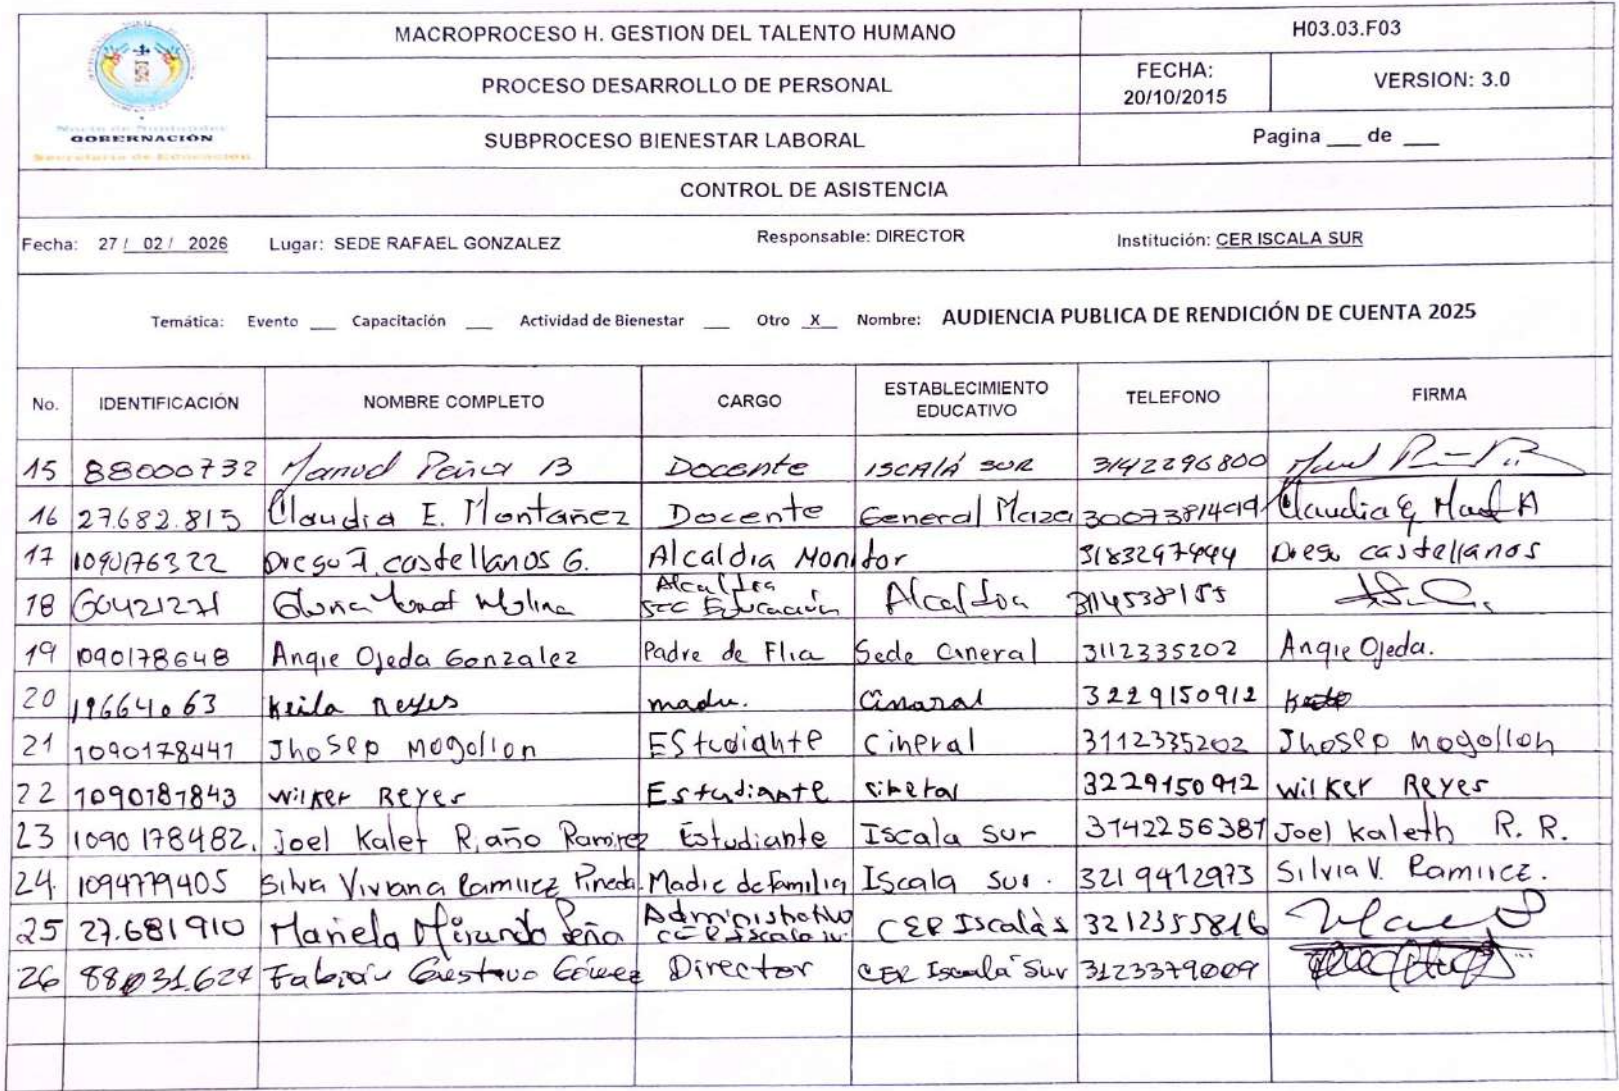 MACROPROCESO H. GESTION DEL TALENTO HUMANO
H03.03.F03
PROCESO DESARROLLO DE PERSONAL
FECHA: 20/10/2015
VERSION: 3.0
Norte de Santander
GOBERNACIÓN
Secretaria de Educación
SUBPROCESO BIENESTAR LABORAL
Pagina ___ de ___
CONTROL DE ASISTENCIA
Fecha: 27 / 02 / 2026 Lugar: SEDE RAFAEL GONZALEZ Responsable: DIRECTOR Institución: CER ISCALA SUR
Temática: Evento ___ Capacitación ___ Actividad de Bienestar ___ Otro X Nombre: AUDIENCIA PUBLICA DE RENDICIÓN DE CUENTA 2025
No. IDENTIFICACIÓN NOMBRE COMPLETO CARGO ESTABLECIMIENTO EDUCATIVO TELEFONO FIRMA
15 88000732 Manuel Peña B Docente ISCALÁ SUR 3142296800
16 27.682.815 Claudia E. Montañez Docente General Maza 3007381499 Claudia E
17 1090176322 Diego F. castellanos G. Alcaldia Monitor 3183297444 Diego castellanos
18 60421271 Molina Alcaldia Sec Educación Alcaldia 3114538155
19 1090178648 Angie Ojeda Gonzalez Padre de Flia Sede Cineral 3112335202 Angie Ojeda.
20 19664063 Keila Reyes madre. Cinaral 3229150912
21 1090178441 Jhosep Mogollon EStudiante Cineral 3112335202 Jhosep Mogollon
22 1090187843 wilker Reyes Estudiante 3229150912 wilker Reyes
23 1090178482. Joel Kalet Riaño Ramirez Estudiante Iscala Sur 3142256387 Joel Kaleth R. R.
24. 1094779405 Silvia Viviana Ramirez Pineda. Madre de familia Iscala Sur. 3219412973 Silvia V. Ramirez.
25 27.681910 Mariela Miranda Peña Administrativo CER Iscala CER Iscalà s 3212355816
26 88031.624 Fabián Gustavo Gómez Director CER Iscala Sur 3123379009